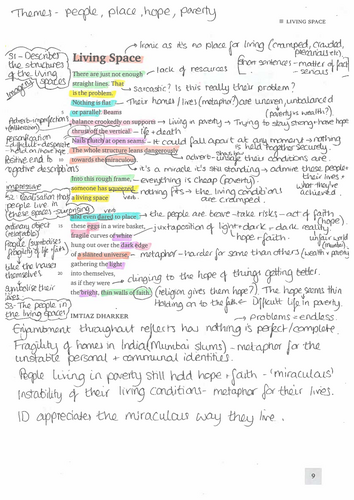 Themes - people, place, hope, poverty
LIVING SPACE
Ironic as it's no place for living (cramped, crowded,
S1 - Describes
the structures
of the living
spaces
Living Space
There are just not enough
straight lines. That
is the problem.
Nothing is flat
or parallel. Beams
balance crookedly on supports
thrust off the vertical.
Nails clutch at open seams.
The whole structure leans dangerously
towards the miraculous.
Into this rough frame,
someone has squeezed
a living space
and even dared to place
these eggs in a wire basket,
fragile curves of white
hung out over the dark edge
of a slanted universe,
gathering the light
into themselves,
as if they were
the bright, thin walls of faith.
IMTIAZ DHARKER
lack of resources
Short sentences - matter of fact
- serious
Sarcastic? Is this really their problem?
Their homes/lives (metaphor?) are uneven, unbalanced
(poverty vs wealth?)
living in poverty → Trying to stay strong - have hope
life + death
it could fall apart at any moment → nothing
is held together securely
adverb - unsafe their conditions are.
it's a miracle it's still standing → admire these people +
their lives +
what they've
achieved
everything is cheap (poverty)
nothing fits → the living conditions
are cramped.
Adverb - imperfections
Personification
- difficult - desperate
- held on made hope
Positive end to
negative descriptions
S2. Realisation that
people live in
these spaces - surprising
ordinary object
(vegetable)
People (symbolises
fragility of life)
like the houses
themselves
symbolise their
lives
S3 - The people in
the living spaces
the people are brave - take risks - act of faith
(hope)
juxtaposition of light + dark = dark reality
hope + faith
unfair world
metaphor - harder for some than others (wealth + poverty)
clinging to the hope of things getting better.
(religion gives them hope?) The hope seems thin
Holding on to the faith ← Difficult life in poverty.
problems = endless.
Enjambment throughout reflects has nothing is perfect/complete.
Fragility of homes in India (Mumbai slums) - metaphor for the
unstable personal + communal identities.
People living in poverty still hold hope + faith - 'miraculous'
Instability of their living conditions - metaphor for their lives.
ID appreciates the miraculous way they live.
9